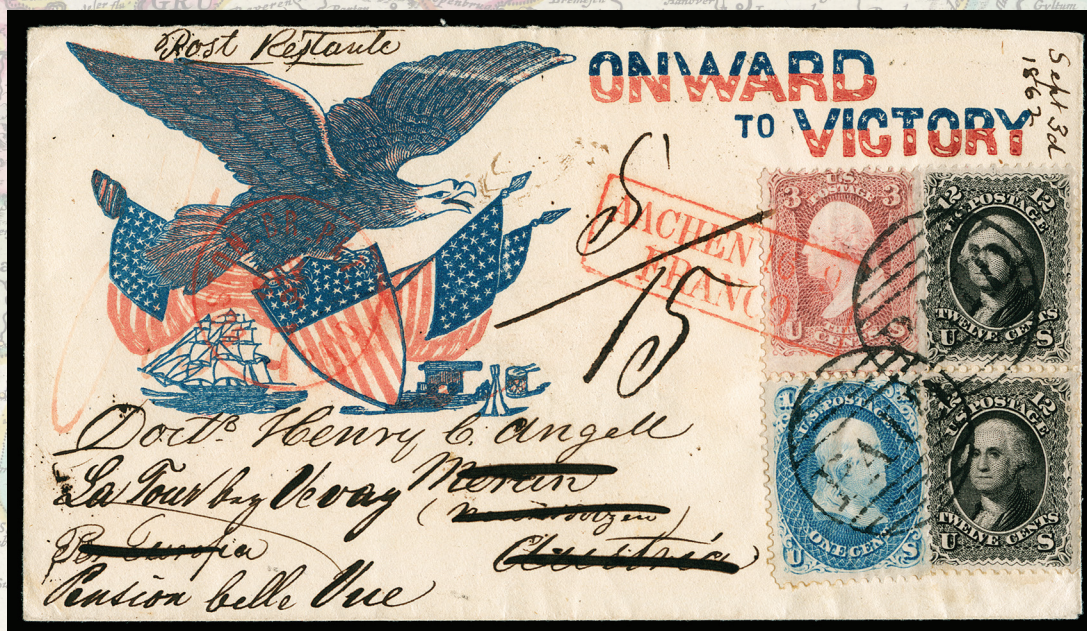 Post Restante
ONWARD
TO VICTORY
Sept 3d
1862
5/15
AACHEN
FRANCO
3 U.S. 3
POSTAGE
U CENTS
12 12
U.S. POSTAGE
TWELVE CENTS
U S
U.S. POSTAGE
ONE CENT
U S
12 12
U.S. POSTAGE
TWELVE CENTS
U S
Doctr. Henry C. Angell
La Tour bey Vevay Meran
Austria
Pension belle Vue